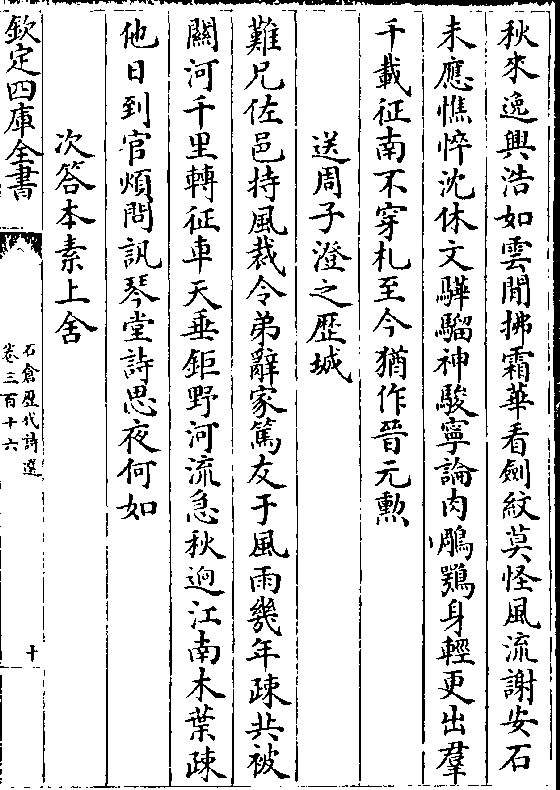 秋來逸興浩如雲閒拂霜華看劍紋莫怪風流謝安石
未應憔悴沈休文驊騮神駿寧論肉鵰鶚身輕更出羣
千載征南不穿札至今猶作晉元勲
送周子澄之歴城
難兄佐邑持風裁令弟辭家篤友于風雨幾年疎共被
關河千里轉征車天垂鉅野河流急秋迥江南木葉疎
他日到官煩問訊琴堂詩思夜何如
次答本素上舍
欽定四庫全書
石倉歴代詩選
卷三百十六
十